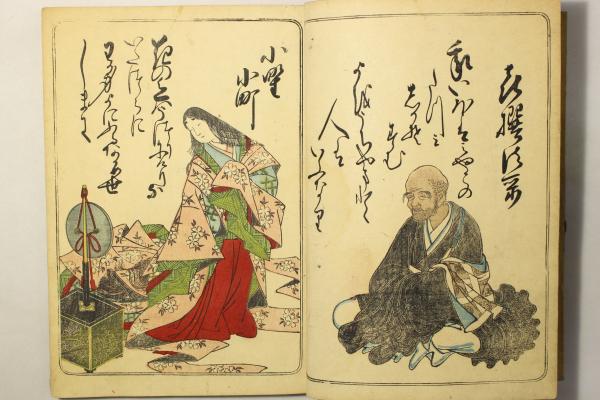 喜撰法師
我いほはみやこの
たつみ
しかそ
すむ
よをうち山と
人は
いふなり
小野
小町
花の色はうつりにけりな
いたつらに
わか身よにふるなかめせ
しまに